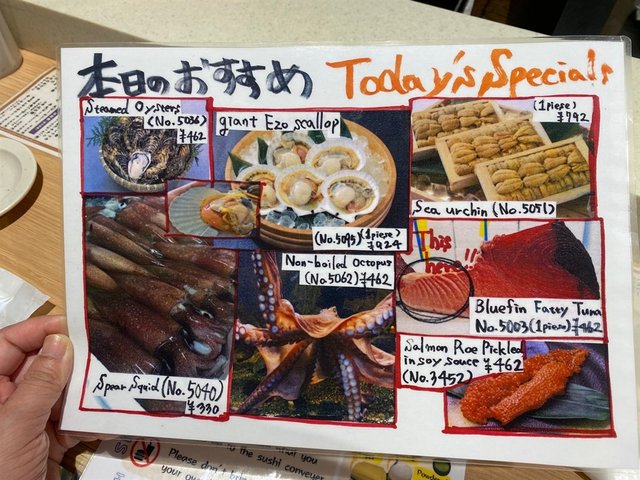 本日のおすすめ Today's Specials
Steamed Oysters
(No.5036)
¥462
giant Ezo scallop
(No.5095)(1piese)
¥924
(1piese)
¥792
Sea urchin (No.5051)
This
here!!
Bluefin Fatty Tuna
No.5003(1piese)¥462
Non-boiled Octopus
(No.5062)¥462
Salmon Roe Pickled
in soy sauce ¥462
(No.3452)
Spear Squid (No.5040)
¥330
to the sushi conveyer
Please don't
your